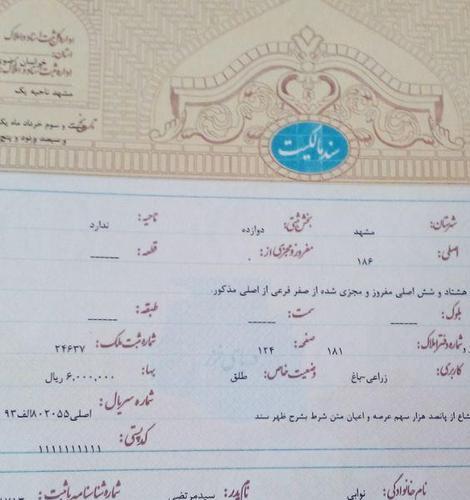 اداره کل ثبت اسناد و املاک
استان:
خراسان رضوی
اداره ثبت اسناد و املاک
مشهد ناحیه یک
تاریخ: و سوم خرداد ماه یک
و سیصد و نود و پنج
سند مالکیت
شهرستان: مشهد بخش ثبتی: دوازده ناحیه: ندارد
اصلی: ۱۸۶ مفروز و مجزی از: ۰ قطعه: -----
هشتاد و شش اصلی مفروز و مجزی شده از صفر فرعی از اصلی مذکور.
بلوک: ----- سمت: ----- طبقه: -----
و شماره دفتر املاک: ۱۸۱ صفحه: ۱۲۴ شماره ثبت ملک: ۲۴۶۳۷
کاربری: زراعی-باغ وضعیت خاص: طلق بها: ۶,۰۰۰,۰۰۰ ریال
شماره سریال: اصلی۸۰۲۰۵۵الف۹۳
مشاع از پانصد هزار سهم عرصه و اعیان متن شرط بشرح ظهر سند
کد پستی: ۱۱۱۱۱۱۱۱۱۱
نام خانوادگی: نوابی نام پدر: سیدمرتضی شماره شناسنامه یا ثبت: